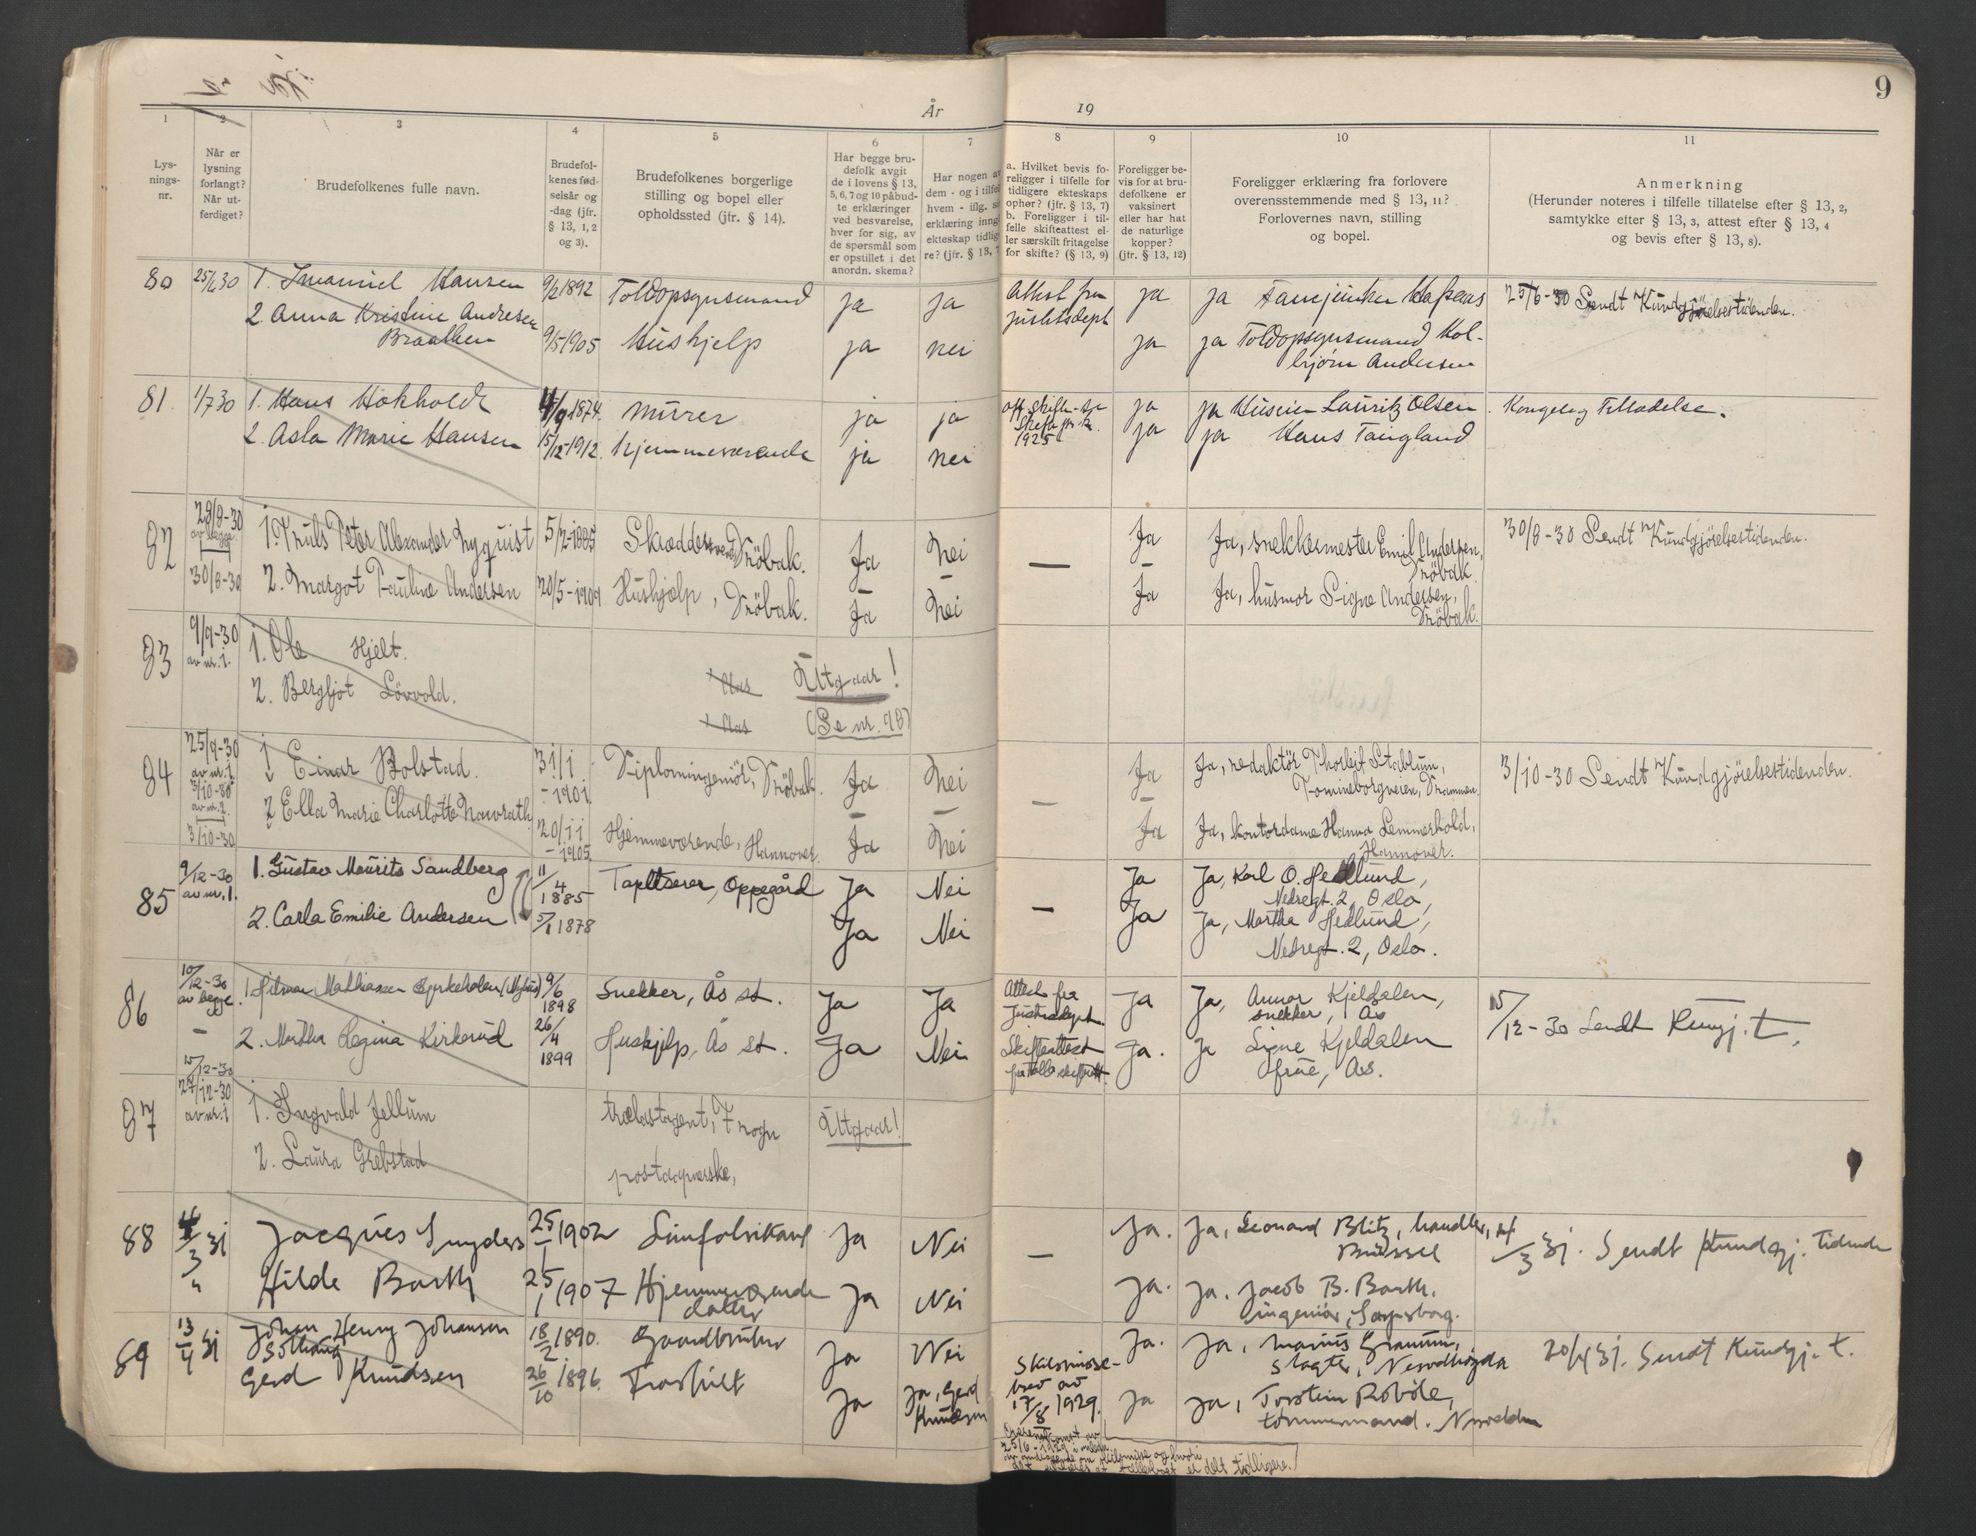 År
19
9
1
2
3
4
5
6
7
8
9
10
11
Lys-
nings-
nr.
Når er
lysning
forlangt?
Når ut-
ferdiget?
Brudefolkenes fulle navn.
Brudefol-
kenes fød-
selsår og
-dag (jfr.
§ 13, 1, 2
og 3).
Brudefolkenes borgerlige
stilling og bopel eller
opholdssted (jfr. § 14).
Har begge bru-
defolk avgit
de i lovens § 13,
5, 6, 7 og 10 påbud-
te erklæringer
ved besvarelse,
hver for sig, av
de spørsmål som
er opstillet i det
anordn. skema?
Har nogen av
dem - og i tilfel
hvem - iflg. si
erklæring inng
ekteskap tidlig
re? (jfr. § 13, 7
a. Hvilket bevis fo-
religger i tilfelle for
tidligere ekteskaps
opher? (jfr. § 13, 7)
b. Foreligger i til-
felle skifteattest el-
ler særskilt fritagelse
for skifte? (§ 13, 9)
Foreligger be-
vis for at bru-
defolkene er
vaksinert
eller har hat
de naturlige
kopper?
(jfr. § 13, 12)
Foreligger erklæring fra forlovere
overensstemmende med § 13, 11?
Forlovernes navn, stilling
og bopel.
Anmerkning
(Herunder noteres i tilfelle tillatelse efter § 13, 2,
samtykke efter § 13, 3, attest efter § 13, 4
og bevis efter § 13, 8).
80 25/6 30 1. Imanuel Hansen 9/2 1892 Toldopsynsmand ja ja Attest fra ja ja 25/6-30 Sendt Kundgjørelsestidenden.
2. Anna Kristine Andresen justitsdept
Braathen 9/5 1905 Hushjelp ja nei ja ja Toldopsynsmand Kol-
bjørn Andersen
81. 1/7 30 1. Hans Hokholdt 4/9 1874. murer ja ja ja ja Lauritz Olsen . Kongelig Tilladelse.
2. Asla Marie Hansen 15/12 1912. hjemmeværende ja nei 1925 ja ja Hans Taugland
82 28/8-30 1. Truls Peter Alexander Nyquist 5/2-1885 Skræddersvend Drøbak. Ja Nei Ja Ja, snekkermester Emil Andersen, 30/8-30 Sendt Kundgjørelsestidenden.
av begge Drøbak.
30/8-30 2. Margot Pauline Andersen 20/5-1909 Hushjælp, Drøbak. Ja Nei — Ja Ja, husmor Signe Andersen,
Drøbak.
83 9/9-30 1. Ole Hjelt.
av nr. 1. Aas Utgaar!
2. Bergljot Lövvold.
Aas (Se nr. 98)
84 25/9-30 1 Einar Bolstad. 31/1 Diplomingeniör, Drøbak. Ja Nei Ja Ja, redaktör Thorleif Stablum, 3/10-30 Sendt Kundgjørelsestidenden.
av nr. 1 -1901. Tomineborgveien, Drammen.
3/10-30
av nr. 2 2 Ella Marie Charlotte Nawrath. 20/11 Hjemmeværende, Hannover. Ja Nei — Ja Ja, kontordame Hanna Lemmerhold,
3/10-30 -1905. Hannover.
85 9/12-30 1. Gustav Maurits Sandberg 11/4 1885 Tapetserer, Oppegård Ja Nei Ja Ja, Karl O. Hedlund,
av nr. 1. Nedregt. 2, Oslo,
2. Carla Emilie Andersen 5/1 1878 Ja Nei — Ja Ja, Martha Hedlund,
Nedregt. 2, Oslo.
86 10/12-30 1. Hilmar Mathiassen 9/6 1898 Snekker, Ås st. Ja Ja Attest fra Ja Ja, Annar Kjeldalen, 15/12-30 Sendt Kungj. t.
av begge. Justisdept. snekker, Ås
— 2. Martha Regina Kirkerud 26/4 1899 Hushjelp, Ås st. Ja Nei Skifteattest Ja. Ja Signe Kjeldalen
15/12-30 frue, Ås.
87 27/12-30 1. Ingvald Jellum trælastagent, Frogn Utgaar!
av nr. 1
2. Laura Grebstad postaapnerske,
88 3 31 Jacques Snyders 25/1 1902 Limfabrikant Ja Nei Ja. Ja, Leonard Blitz, handler, /3 31. Sendt Kundgj. Tidende
Brüssel
Hilde Barth 25/1 1907 Hjemmeværende Ja Nei — Ja. Ja, Jacob B. Barth,
datter ingeniør, Sarpsborg.
89 13/4 31 Johan Henry Johansen 18/2 1890. Gaardbruker Ja Nei Ja. Ja, Marius Granum, 20/4 31. Sendt Kundgj. t.
Skilsmisse- Slagter,
Gerd Knudsen 26/10 1896. Fraskilt Ja Ja, Gerd brev av Ja Ja, Torstein Bøbøle,
Knudsen 17/8 1929. tømmermand.
25/6-1929